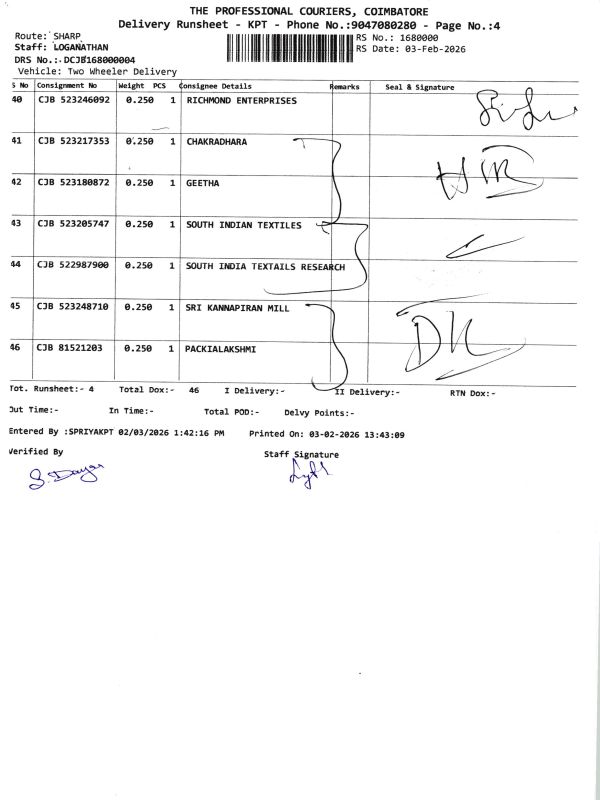 THE PROFESSIONAL COURIERS, COIMBATORE
Delivery Runsheet - KPT - Phone No.:9047080280 - Page No.:4
Route: SHARP
RS No.: 1680000
Staff: LOGANATHAN
RS Date: 03-Feb-2026
DRS No.:-DCJB168000004
Vehicle: Two Wheeler Delivery
S No Consignment No Weight PCS Consignee Details Remarks Seal & Signature
40 CJB 523246092 0.250 1 RICHMOND ENTERPRISES
41 CJB 523217353 0.250 1 CHAKRADHARA
42 CJB 523180872 0.250 1 GEETHA
43 CJB 523205747 0.250 1 SOUTH INDIAN TEXTILES
44 CJB 522987900 0.250 1 SOUTH INDIA TEXTAILS RESEARCH
45 CJB 523248710 0.250 1 SRI KANNAPIRAN MILL
46 CJB 81521203 0.250 1 PACKIALAKSHMI
Tot. Runsheet:- 4 Total Dox:- 46 I Delivery:- II Delivery:- RTN Dox:-
Out Time:- In Time:- Total POD:- Delvy Points:-
Entered By :SPRIYAKPT 02/03/2026 1:42:16 PM Printed On: 03-02-2026 13:43:09
Verified By Staff Signature